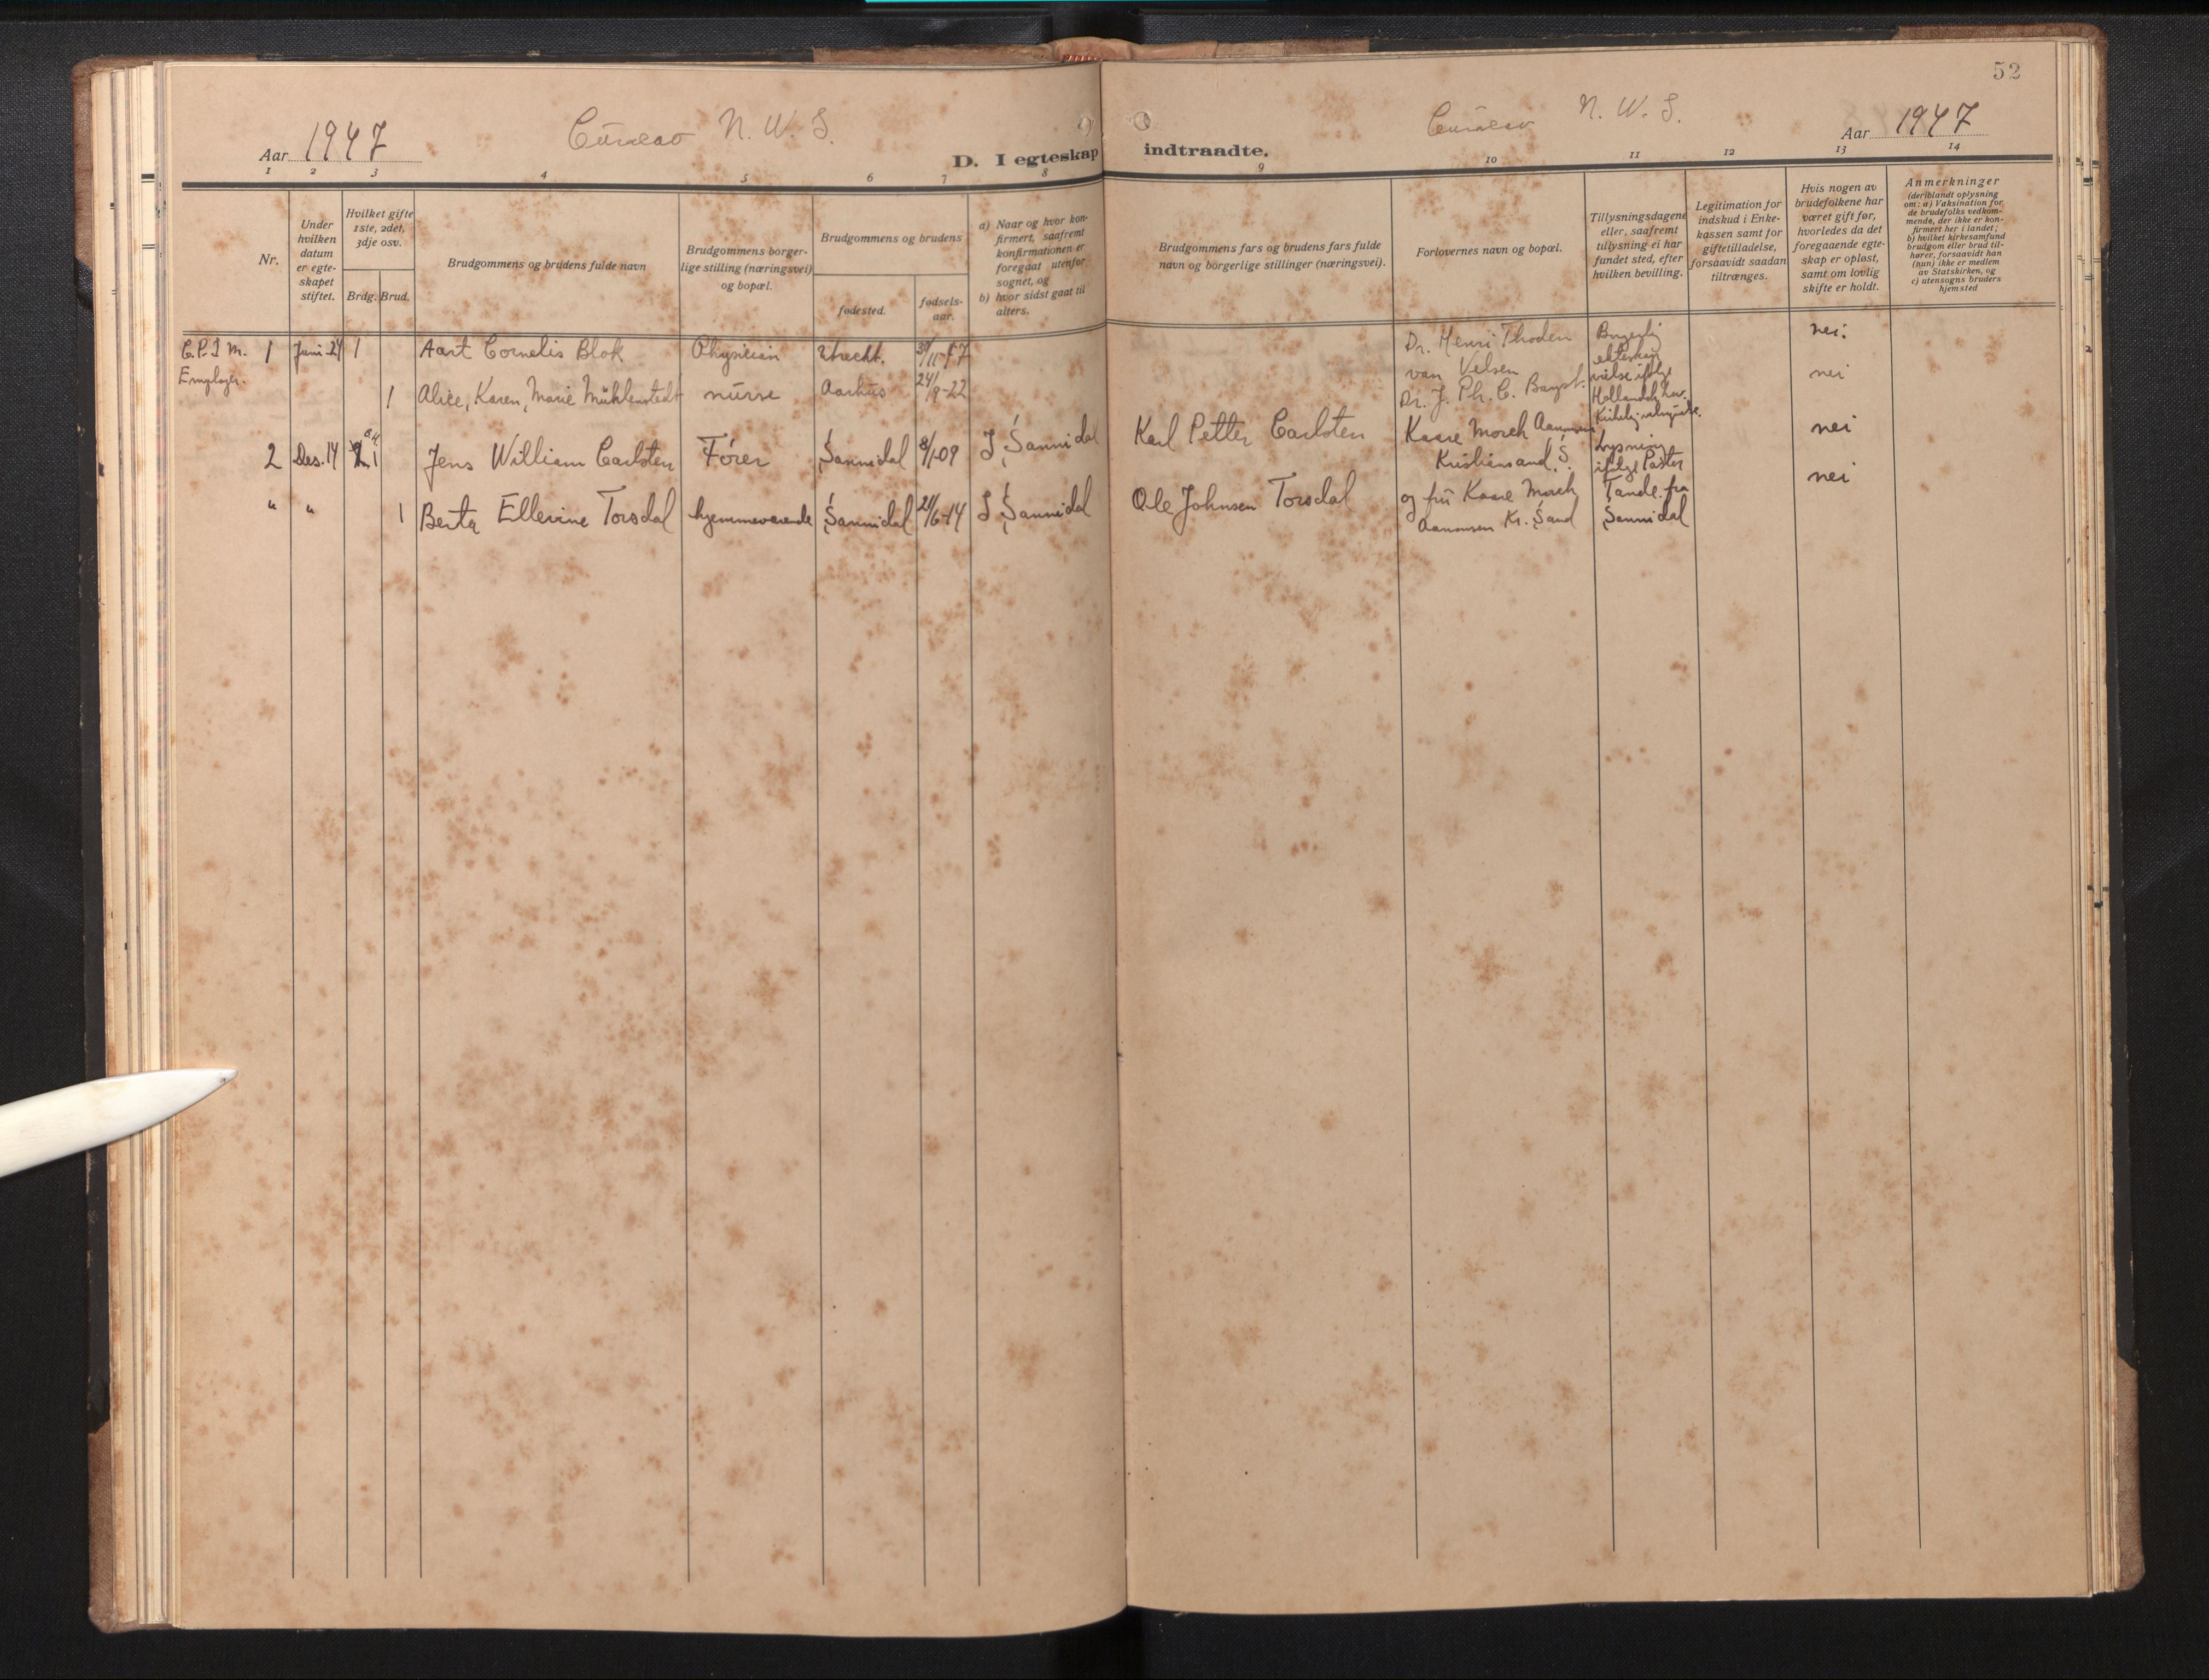 52
Aar 1947
N. W. S.
D. I egteskap
N. W. S.
indtraadte.
Aar 1947
1 2 3 4 5 6 7 8
9 10 11 12 13 14
Nr.
Under
hvilken
datum
er egte-
skapet
stiftet.
Hvilket gifte
1ste, 2det,
3dje osv.
Brdg. Brud.
Brudgommens og brudens fulde navn
Brudgommens borger-
lige stilling (næringsvei)
og bopæl.
Brudgommens og brudens
fødested.
fødsels-
aar.
a) Naar og hvor kon-
firmert, saafremt
konfirmationen er
foregaat utenfor
sognet, og
b) hvor sidst gaat til
alters.
Brudgommens fars og brudens fars fulde
navn og borgerlige stillinger (næringsvei).
Forlovernes navn og bopæl.
Tillysningsdagene
eller, saafremt
tillysning ei har
fundet sted, efter
hvilken bevilling.
Legitimation for
indskud i Enke-
kassen samt for
giftetilladelse,
forsaavidt saadan
tiltrænges.
Hvis nogen av
brudefolkene har
været gift før,
hvorledes da det
foregaaende egte-
skap er opløst,
samt om lovlig
skifte er holdt.
Anmerkninger
(deriblandt oplysning
om: a) Vaksination for
de brudefolks vedkom-
mende, der ikke er kon-
firmert her i landet;
b) hvilket kirkesamfund
brudgom eller brud til-
hører, forsaavidt han
(hun) ikke er medlem
av Statskirken, og
c) utensogns bruders
hjemsted
C.P.I.M. 1 Juni 24 1 Aart Cornelis Blok Physician Utrecht.
1 Alice, Karen, Marie Mühlenstedt nurse Aarhus 24/9-22
Dr. Henri Thoden
van Velsen
Dr. J. Ph. C.
Borgerlig
ekteskap
vielse ifølge
nei
nei
2 Des. 14 1 Jens William Carlsten Fører Sannidal 8/1-09 I Sannidal
Karl Petter Carlsten
Kaare Morch Aanonsen
Kristiansand S.
Lysning
ifølge Pastor
Tande fra
Sannidal
nei
" " 1 Berta Ellevine Torsdal hjemmeværende Sannidal 21/6-14 I Sannidal
Ole Johnsen Torsdal
og fru Kaare Morch
Aanonsen Kr. Sand
nei